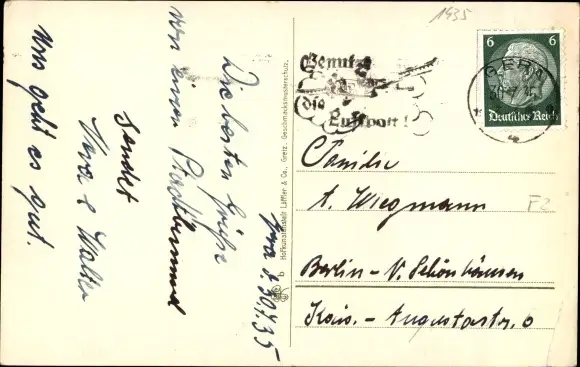 Gera d. 30.7.35
Die besten Grüße
von einem Stadtbummel
sendet
Hera & Walter
Uns geht es gut.
Hofkunstanstalt Löffler & Co., Greiz. Geschmacksmusterschutz.
b
1935
Benutzt
die
Luftpost!
GERA
30.7.35
6 6
Deutsches Reich
Familie
A. Wiegmann
F2
Berlin-N. Schönhausen
Kais.-Augustastr. 6